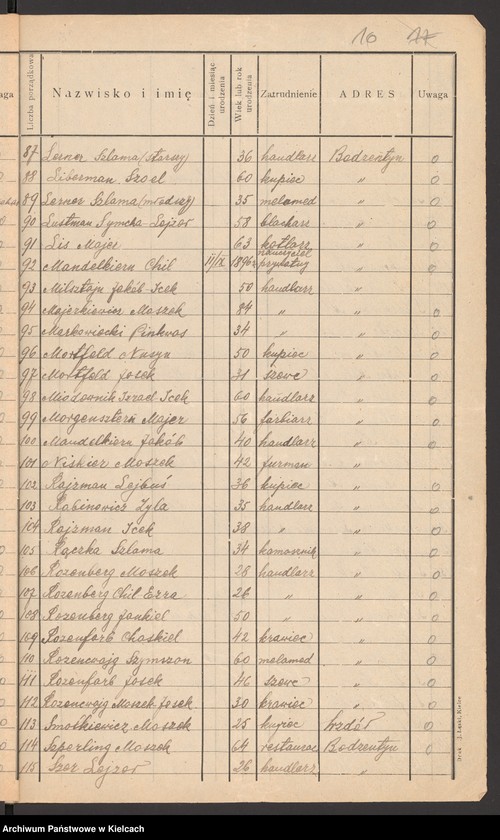 10 17
aga Liczba porządkowa Nazwisko i imię Dzień i miesiąc urodzenia Wiek lub rok urodzenia Zatrudnienie ADRES Uwaga
87 Lerner Szlama (starszy) 36 handlarz Bodzentyn 0
88 Liberman Szoel 60 kupiec " 0
89 Lerner Szlama (młodszy) 35 melamed " 0
90 Lustman Symcha-Lejzor 58 blacharz " 0
91 Lis Majer 63 kotlarz " 0
92 Mandelkiern Chil 11/IX 1896 r. nauczyciel prywatny " 0
93 Milsztajn Jakób-Icek 50 handlarz "
94 Majerkiewicz Moszek 84 " " 0
95 Markowiecki Pinkwas 34 " " 0
96 Mortfeld Nusyn 50 kupiec " 0
97 Mortfeld Josek 31 szewc " 0
98 Miodownik Izrael Icek 60 handlarz " 0
99 Morgensztern Majer 56 farbiarz " 0
100 Mandelkiern Jakób 40 handlarz " 0
101 Niskier Moszek 42 furman "
102 Rajzman Lejbuś 36 kupiec " 0
103 Rabinowicz Zyla 35 handlarz " 0
104 Rajzman Icek 38 " " 0
105 Rączka Szlama 34 " 0
106 Rozenberg Moszek 28 handlarz " 0
107 Rozenberg Chil Ezra 26 " " 0
108 Rozenberg Jankiel 50 " " 0
109 Rozenfarb Chaskiel 42 krawiec " 0
110 Rozencwajg Szymszon 60 melamed " 0
111 Rozenfarb Josek 46 szewc " 0
112 Rozencwajg Moszek Josek 30 krawiec " 0
113 Smolkiewicz Moszek 25 kupiec Wzdół 0
114 Szperling Moszek 64 restaurac Bodzentyn 0
115 Szer Lejzor 26 handlarz "
Druk. J. Łaski, Kielce
Archiwum Państwowe w Kielcach